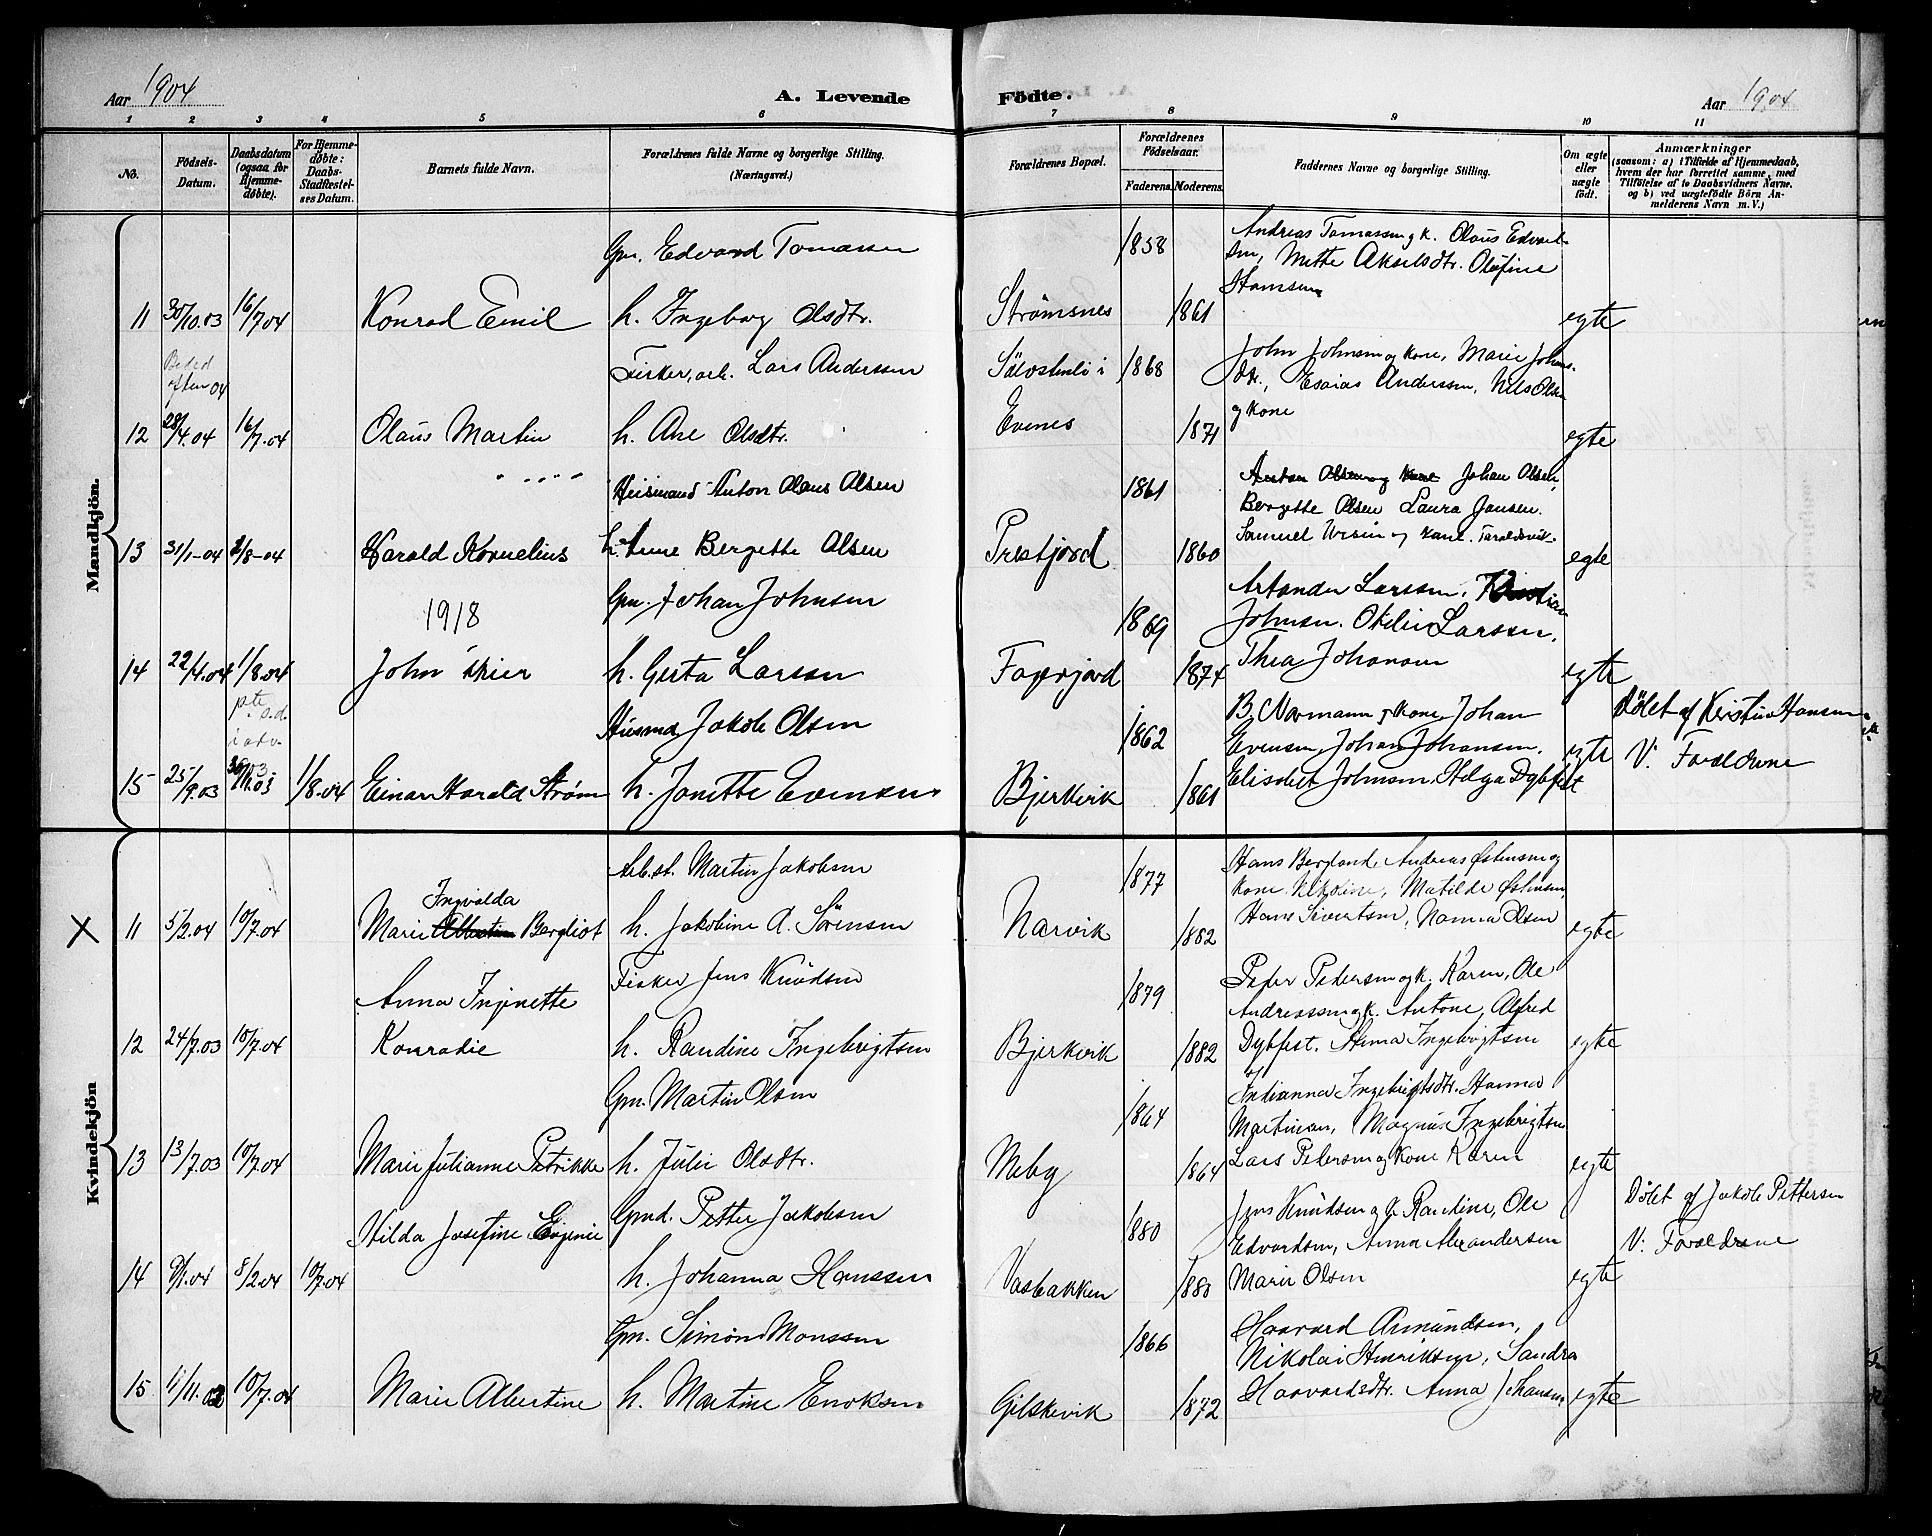 Aar 1904
A. Levende
Födte.
Aar 1904
1 2 3 4 5 6 7 8 9 10 11
No.
Födsels-
Datum.
Daabsdatum
(ogsaa for
Hjemme-
døbte).
For Hjemme-
døbte:
Daabs-
Stadfæstel-
ses Datum.
Barnets fulde Navn.
Forældrenes fulde Navne og borgerlige Stilling.
(Næringsvei.)
Forældrenes Bopæl.
Forældrenes
Födselsaar.
Faderens. Moderens.
Faddernes Navne og borgerlige Stilling.
Om ægte
eller
uægte
födt.
Anmærkninger
(saasom: a) i Tilfælde af Hjemmedaab,
hvem der har forrettet samme, med
Tilföielse af to Daabsvidners Navne,
og b) ved uægtefödte Börn An-
melderens Navn m. V.)
Mandkjön.
Gm. Edvard Tomassen
1858
Andreas Tomassen og k. Olaus Edvard-
sen, Mette Akselsdtr. Olufine
Hansen
11 30/10.03 16/7 04 Konrad Emil h. Ingeborg Olsdtr. Strømsnes 1861 egte
Fisker, arb. Lars Anderssen
i 1868
John Johnsen og kone, Marie Johns-
dtr., Esaias Anderssen, Nils Olsen
og kone
12 28/4.04 16/7.04 Olaus Martin h. Ane Olsdtr. Evenes 1871 egte
Husmand Anton Olaus Olsen
1861
Anton Olsen og kone Johan Olsen,
Bergette Olsen Laura Jansen.
Samuel Ursin og kone. Taraldsvik
13 31/1-04 /8-04 Harald Kornelius h. Anne Bergette Olsen Prestjord 1860 egte
1918
Gm. Johan Johnsen
1869
Larssen, Kristian
Johnsen. Otelie Larssen.
Thea Johansen
14 22/4.04 1/8.04 John h. Gerta Larsen Fagerjord 1874 egte
Husmd Jakob Olsen
1862
B. Normann og kone, Johan
Evensen, Johan Johansen,
Elisabet Johnsen, Helga Dybfest
Döbt af Kristine Hansen
V. Forældrene
15 25/9.03 1/8.04 Einar Harald Strøm h. Janette Evensen Bjerkvik 1861 egte
Kvindekjön
Arb.st. Martin Jakobsen
1877
Hans Bergland, Andreas Østensen og
kone Nikoline, Matilde Østensen,
Hans Sivertsen, Nanna Olsen
X 11 5/2.04 10/7.04 Marie Ingvalda Bergliot h. Jakobine A. Sörensen Narvik 1882 egte
Fisker Jens Knudsen
1879
Peder Pedersen og k. Karen, Ole
Andreassen og k. Antone, Alfred
Dybfest. Anna Ingebrigtsen
Anna Ingenette
12 24/7.03 10/7.04 Konradie h. Randine Ingebrigtsen Bjerkvik 1882 egte
Gm. Martin Olsen
1864
Indianna Ingebrigtsdtr. Hanna
Martinsen, Magnus Ingebrigtsen
Lars Pedersen og kone Karen
13 13/7.03 10/7.04 Marie Julianne Petrikke h. Julie Olsdtr. Meby 1864 egte
Gmd. Petter Jakobsen
1880
Jens Knudsen og k. Randine, Ole
Edvardsen, Anna Alexandersen
Marie Olsen
Döbt af Jakob Pettersen
V. Forældrene
Hilda Josefine Eugenie
14 9/1.04 8/2.04 10/7.04 h. Johanna Hanssen Vasbakken 1880 egte
Gm. Simon Monssen
1866
Haavard Amundsen,
Nikolai Henriksen, Sandra
Haavardsdtr. Anna Johansen
15 11/11.03 10/7.04 Marie Albertine h. Martine Enoksen 1872 egte